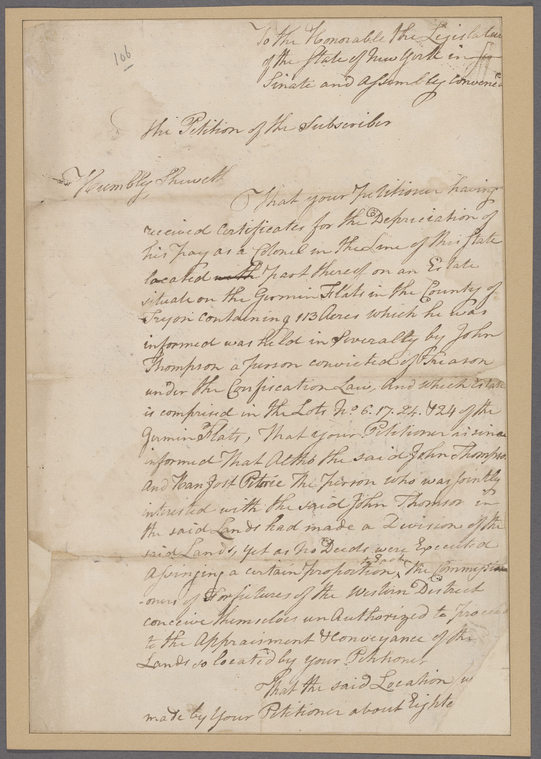 106
To the Honorable the Legislature
of the State of New York in
Senate and Assembly Convened
the Petition of the Subscriber
Humbly Sheweth
That your Petitioner having
received Certificates for the Depreciation of
his pay as a Colonel in the Line of this State
located with part thereof on an Estate
situate on the Germin Flats in the County of
Tryon containing 113 Acres which he was
informed was held in Severalty by John
Thompson a person convicted of Treason
under the Confiscation Law, And which Estate
is comprised in the Lots No. 6. 17. 24. & 24 of the
Germin Flats, That your Petitioner is since
informed That Altho the said John Thompson
and Han Jost the Person who was jointly
interested with the said John Thomson in
the said Lands had made a Devision of the
said Lands, yet as no Deeds were Executed
Assinging a certain proportion to Each, the Commissi
oners of Forfitures of the Western District
conceive themselves unAuthorized to Proceed
to the Appraisment & Conveyance of the
Lands so located by your Petitioner,
That the said Location is
made by your Petitioner about Eighte